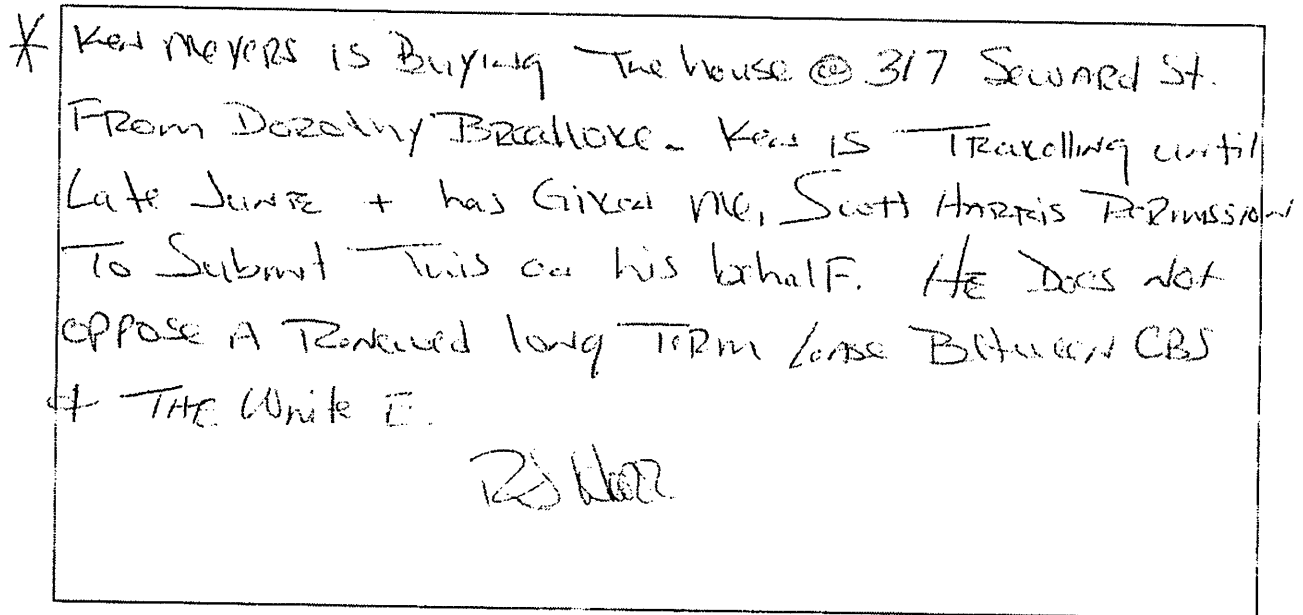 * Ken Meyers is Buying The house @ 317 Seward St.
From Dorothy Breedlove - Ken is Travelling until
Late June + has Given me, Scott Harris Permission
To Submit This on his behalf. He Does not
oppose A Renewed long Term lease Between CBS
+ THE White E.